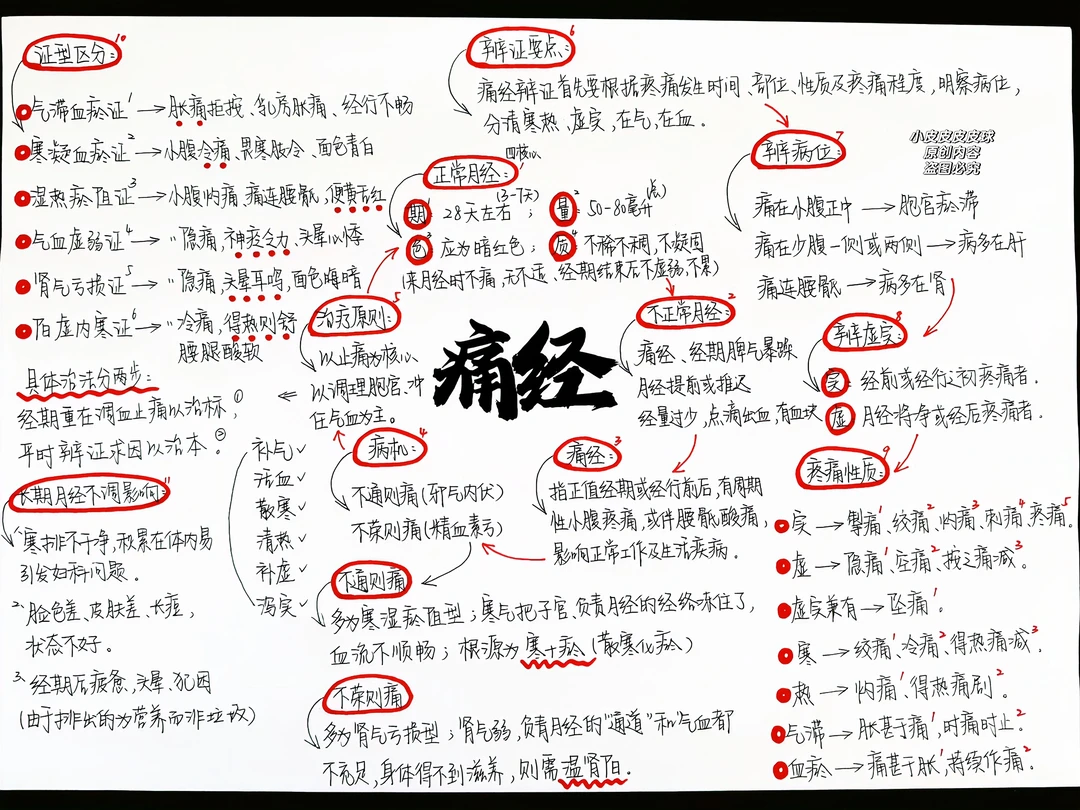 证型区分: 10
气滞血瘀证1 → 胀痛拒按、乳房胀痛、经行不畅
寒凝血瘀证2 → 小腹冷痛、畏寒肢冷、面色青白
湿热瘀阻证3 → 小腹灼痛、痛连腰骶,便黄舌红
气血虚弱证4 → 〃隐痛,神疲乏力、头晕心悸
肾气亏损证5 → 〃隐痛,头晕耳鸣,面色晦暗
阳虚内寒证6 → 〃冷痛,得热则舒
腰腿酸软
具体治法分两步:
经期重在调血止痛以治标,①
平时辨证求因以治本。②
长期月经不调影响: 11
1、寒排不干净,积累在体内易
引发妇科问题。
2、脸色差、皮肤差、长痘,
状态不好。
3、经期后疲惫,头晕、犯困
(由于排出的为营养而非垃圾)
辨证要点: 6
痛经辨证首先要根据疼痛发生时间、部位、性质及疼痛程度,明察病位,
分清寒热、虚实,在气,在血。
四核心
正常月经: 1
期1 28天左右(3-7天);量2 50-80毫升(点)
色3 应为暗红色;质4 不稀不稠,不凝固
(来月经时不痛,无不适、经期结束后不虚弱,不累)
治疗原则: 5
以止痛为核心,
以调理胞宫、冲
任气血为主。
补气✓
活血✓
散寒✓
清热✓
补虚✓
泻实✓
痛经
不正常月经: 2
痛经、经期脾气暴躁
月经提前或推迟
经量过少,点滴出血,有血块
病机: 4
不通则痛(邪气内伏)
不荣则痛(精血素亏)
痛经: 3
指正值经期或经行前后,有周期
性小腹疼痛,或伴腰骶酸痛,
影响正常工作及生活疾病。
不通则痛
多为寒湿瘀阻型;寒气把子宫、负责月经的经络冻住了,
血流不顺畅;根源为寒+瘀(散寒化瘀)
不荣则痛
多为肾气亏损型;肾气弱,负责月经的"通道"和气血都
不充足,身体得不到滋养,则需温肾阳.
小皮皮皮皮球
原创内容
盗图必究
辨病位: 7
痛在小腹正中 → 胞宫瘀滞
痛在少腹一侧或两侧 → 病多在肝
痛连腰骶 → 病多在肾
辨虚实: 8
实: 经前或经行之初疼痛者.
虚 月经将净或经后疼痛者.
疼痛性质: 9
实 → 掣痛1、绞痛2、灼痛3、刺痛4、疼痛5.
虚 → 隐痛1、空痛2、按之痛减3。
虚实兼有 → 坠痛1。
寒 → 绞痛1、冷痛2、得热痛减3.
热 → 灼痛1、得热痛剧2。
气滞 → 胀甚于痛1,时痛时止2.
血瘀 → 痛甚于胀1,持续作痛2.